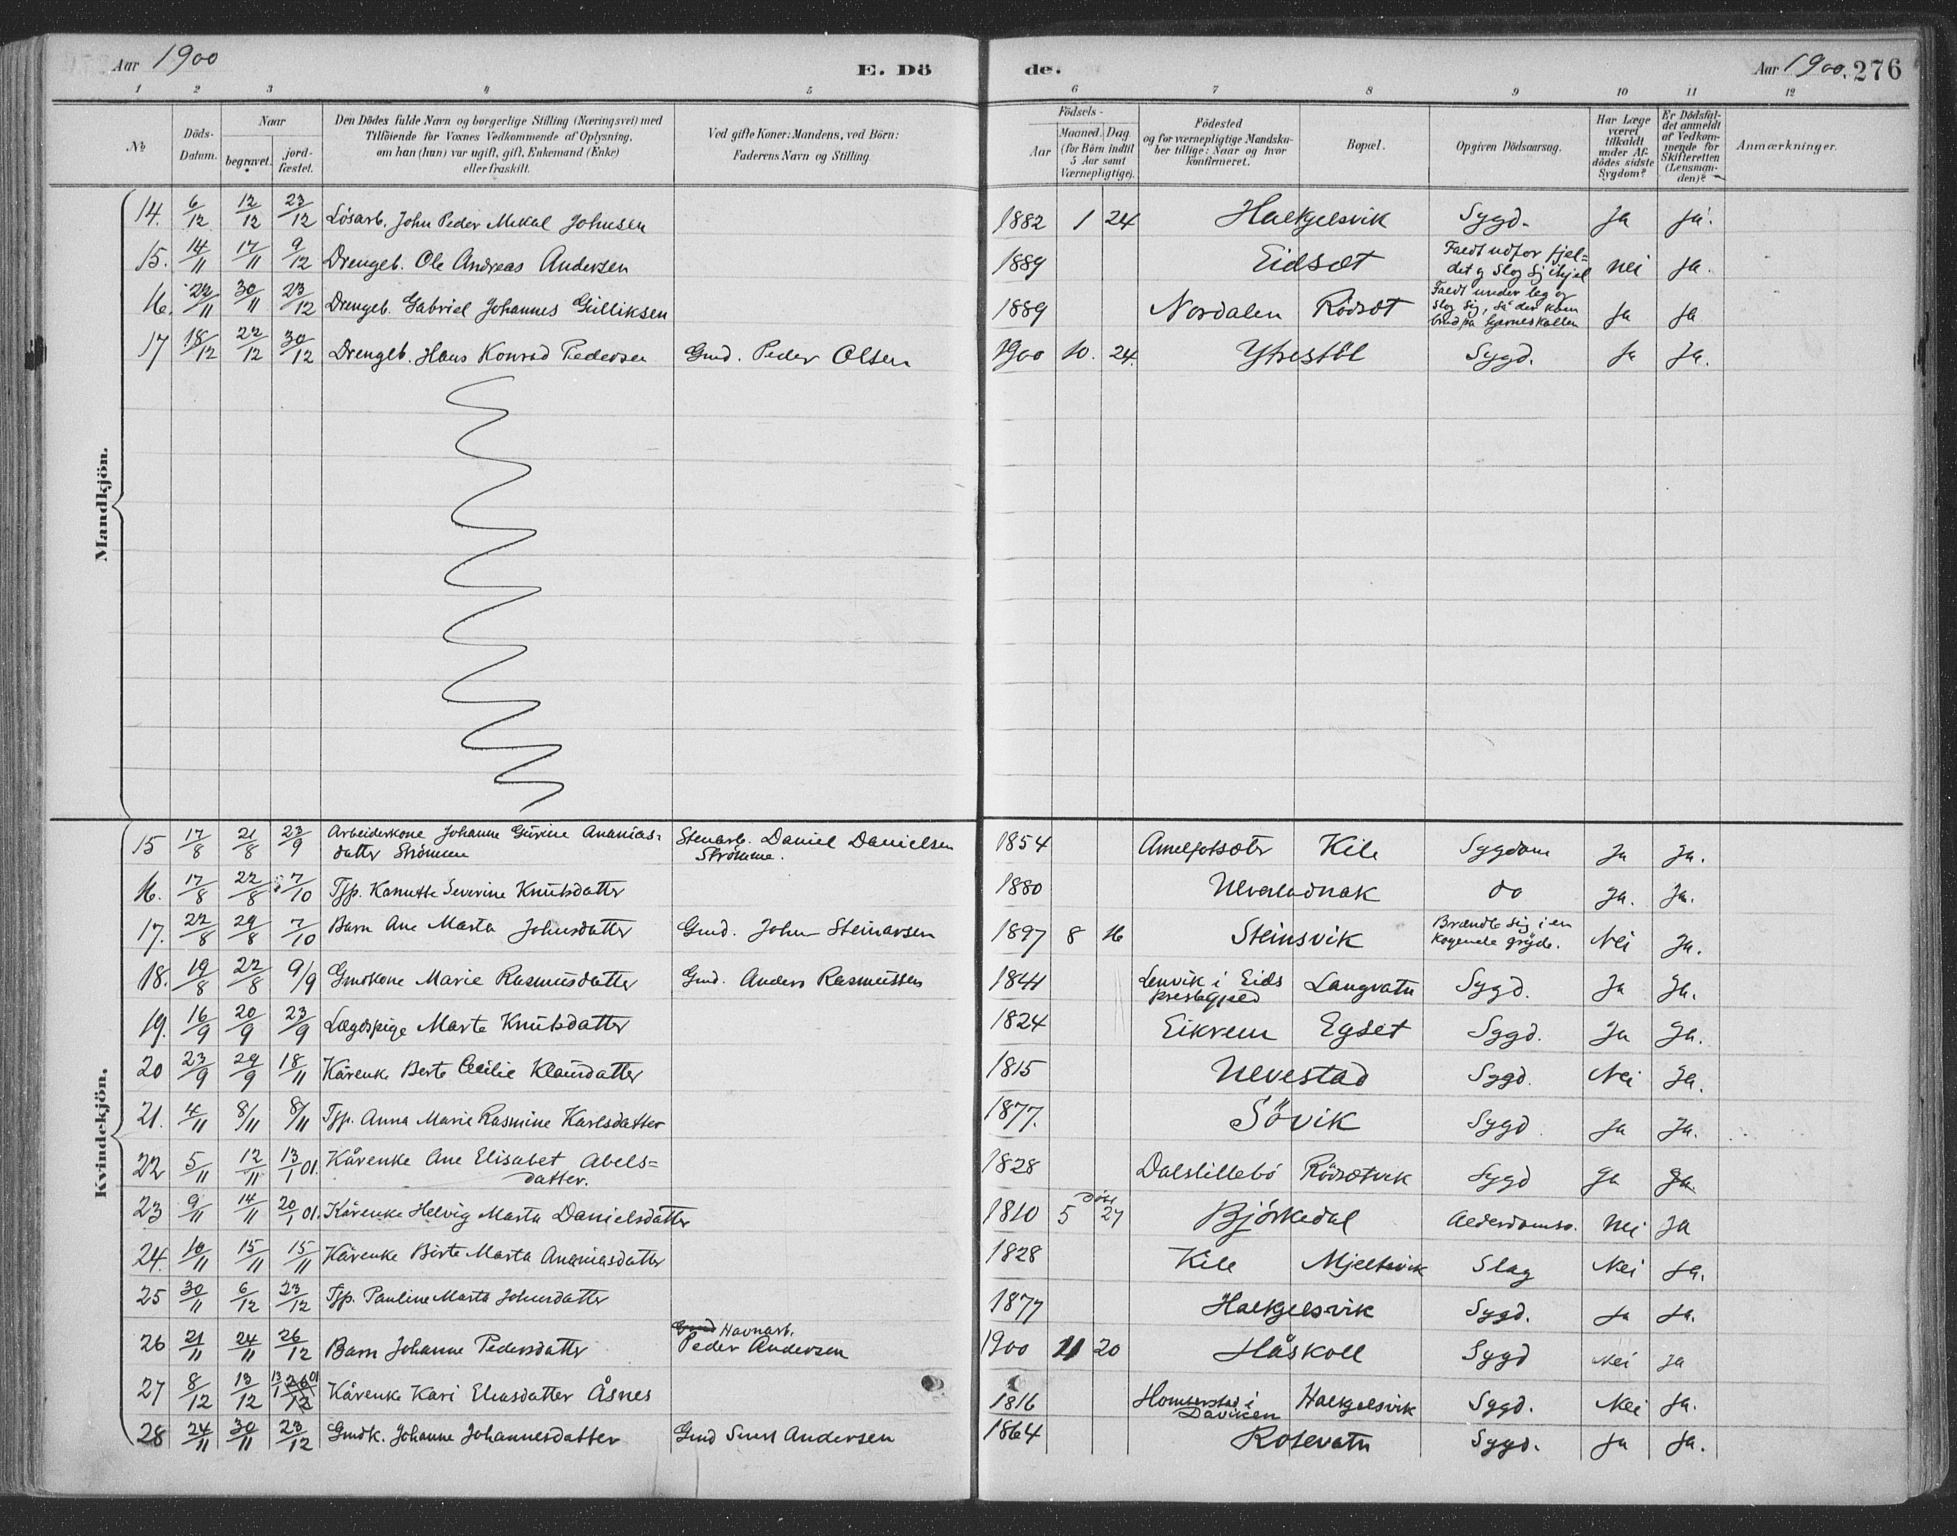 Aar 1900
E. Dö
de.
Aar 1900. 276
1 2 3 4 5 6 7 8 9 10 11 12
No
Döds-Datum.
Naar
begravet.
jord-fæstet.
Den Dödes fulde Navn og borgerlige Stilling (Næringsvei) med
Tilföiende for Voxnes Vedkommende af Oplysning,
om han (hun) var ugift, gift, Enkemand (Enke)
eller fraskilt.
Ved gifte Koner: Mandens, ved Börn:
Faderens Navn og Stilling
Födsels-
Aar
Maaned. Dag
(for Börn indtil
5 Aar samt
Værnepligtige).
Födested
og for værnepligtige Mandska-
ber tillige: Naar og hvor
konfirmeret.
Bopæl.
Opgiven Dödsaarsag.
Har Læge
været
tilkaldt
under Af-
dödes sidste
Sygdom?
Er Dödsfal-
det anmeldt
af Vedkom-
mende for
Skifteretten
(Lensman-
den)?
Anmærkninger.
Mandkjön.
14. 6/12 12/12 23/12 Lösarb. John Peder Mikal Johnsen 1882 1 24 Halkjelsvik Sygd. Ja Ja.
15. 14/11 17/11 9/12 Drengeb. Ole Andreas Andersen 1889 Eidsæt Faldt udfor fjel=
det og slog sj ihjel nei Ja.
16. 22/11 30/11 23/12 Drengeb. Gabriel Johannes Gulliksen 1889 Nordalen Rödsæt Faldt under leg og
slog sig, så der kom
brud på hjerneskallen Ja Ja
17 18/12 22/12 30/12 Drengeb. Hans Konrad Pedersen Gmd. Peder Olsen 1900 10. 24. Ytrestöl Sygd. Ja Ja.
Kvindekjön.
15 17/8 21/8 23/9 Arbeiderkone Johanne Gurine Ananias=
datter Strömmen Stenarb. Daniel Danielsen
Strömme. 1854 Amelfotsæter Kile Sygdom Ja Ja.
16. 17/8 22/8 7/10 Tjp. Kanutte Severine Knutsdatter 1880 do Ja. Ja.
17. 22/8 29/8 7/10 Barn Ane Marta Johnsdatter Gmd. John Steinarsen 1897 8 16 Steinsvik Brændte sig i en
kogende gryde. Nei Ja.
18. 19/8 22/8 9/9 Gmdkone Marie Rasmusdatter Gmd. Anders Rasmussen 1844 Lenvik i Eids
prestegjeld Langvatn Sygd. Ja Ja.
19. 16/9 20/9 23/9 Lægdspige Marte Knutsdatter 1824 Eikrem Egset Sygd. Ja Ja.
20 23/9 29/9 18/11 Kårenke Berte Cecilie Klausdatter 1815 Ulvestad Sygd. Nei Ja.
21. 4/11 8/11 8/11 Tjp. Anna Marie Rasmine Karlsdatter 1877. Sövik Sygd. Ja Ja.
22 5/11 12/11 13/1 01. Kårenke Ane Elisabet Abels=
datter. 1828 Dalslillebö Rödsætvik Sygd Ja Ja.
23 9/11 14/11 20/1 01. Kårenke Helvig Marta Danielsdatter 1810 5 döbt 27 Björkedal Alderdomss. Nei Ja
24. 10/11 15/11 15/11 Kårenke Birte Marta Ananiasdatter 1828 Kile Mjeltevik Slag Nei Ja.
25 30/11 6/12 23/12 Tjp. Pauline Marta Johnsdatter 1877 Halkjelsvik Sygd. Ja Ja.
26 21/11 24/11 26/12 Barn Johanne Pedersdatter Gmd Havnarb.
Peder Andersen 1900 11 20 Håskoll Sygd Nei Ja
27 8/12 13/12 13/1 01 26/12 Kårenke Kari Eliasdatter Åsnes 1816 Hommerstad i
Daviken Halkjelsvik Sygd. Nei Ja.
28 24/11 30/11 23/12 Gmdk. Johanne Johannesdatter Gmd Andersen 1864 Rotevatn Sygd. Ja Ja.